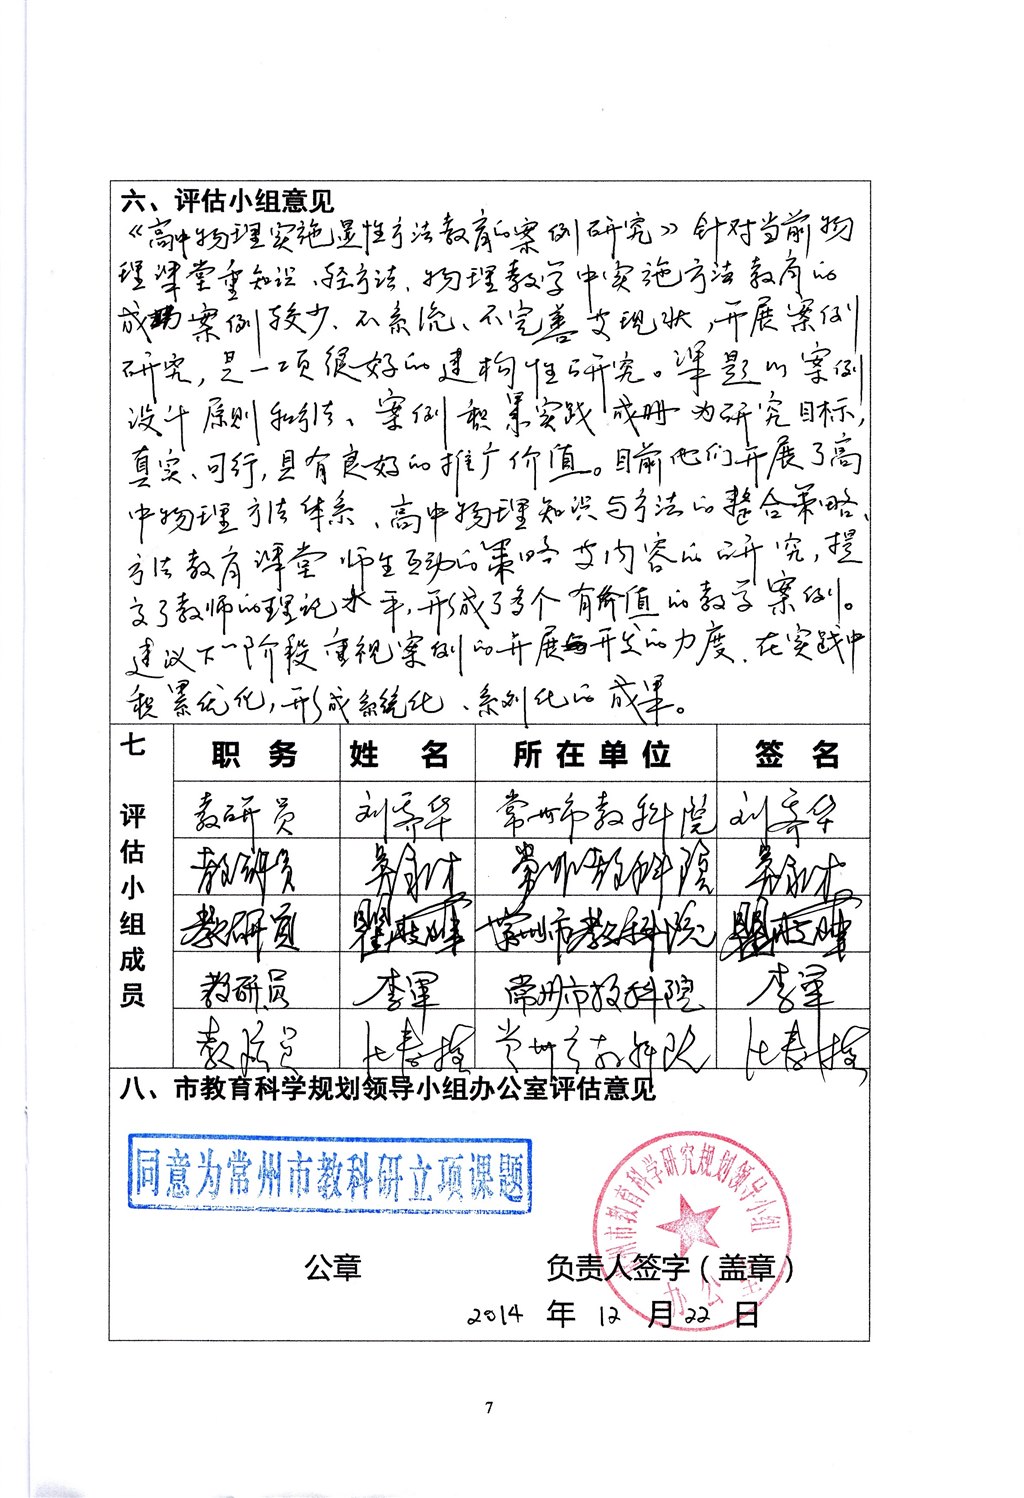 六、评估小组意见
《高中物理实施显性方法教育的案例研究》针对当前物
理课堂重知识、轻方法、物理教学中实施方法教育的
成功案例较少、不系统、不完善之现状，开展案例
研究，是一项很好的建构性研究。课题以案例
设计原则和方法、案例积累实践成册为研究目标，
真实、可行，具有良好的推广价值。目前他们开展了高
中物理方法体系、高中物理知识与方法的整合策略、
方法教育课堂师生互动的策略等内容的研究，提
高了教师的理论水平，形成了多个有价值的教学案例。
建议下一阶段重视案例的开展与开发的力度，在实践中
积累优化，形成系统化、系列化的成果。
七 评估小组成员
职务 姓名 所在单位 签名
教研员 刘齐华 常州市教科院 刘齐华
教研员 吴永才 常州教科院 吴永才
教研员 瞿晖 常州市教科院 瞿晖
教研员 李军 常州市教科院 李军
教研员 常州市教科院
八、市教育科学规划领导小组办公室评估意见
同意为常州市教科研立项课题
常州市教育科学研究规划领导小组
办公室
公章 负责人签字（盖章）
2014 年 12 月 22 日
7